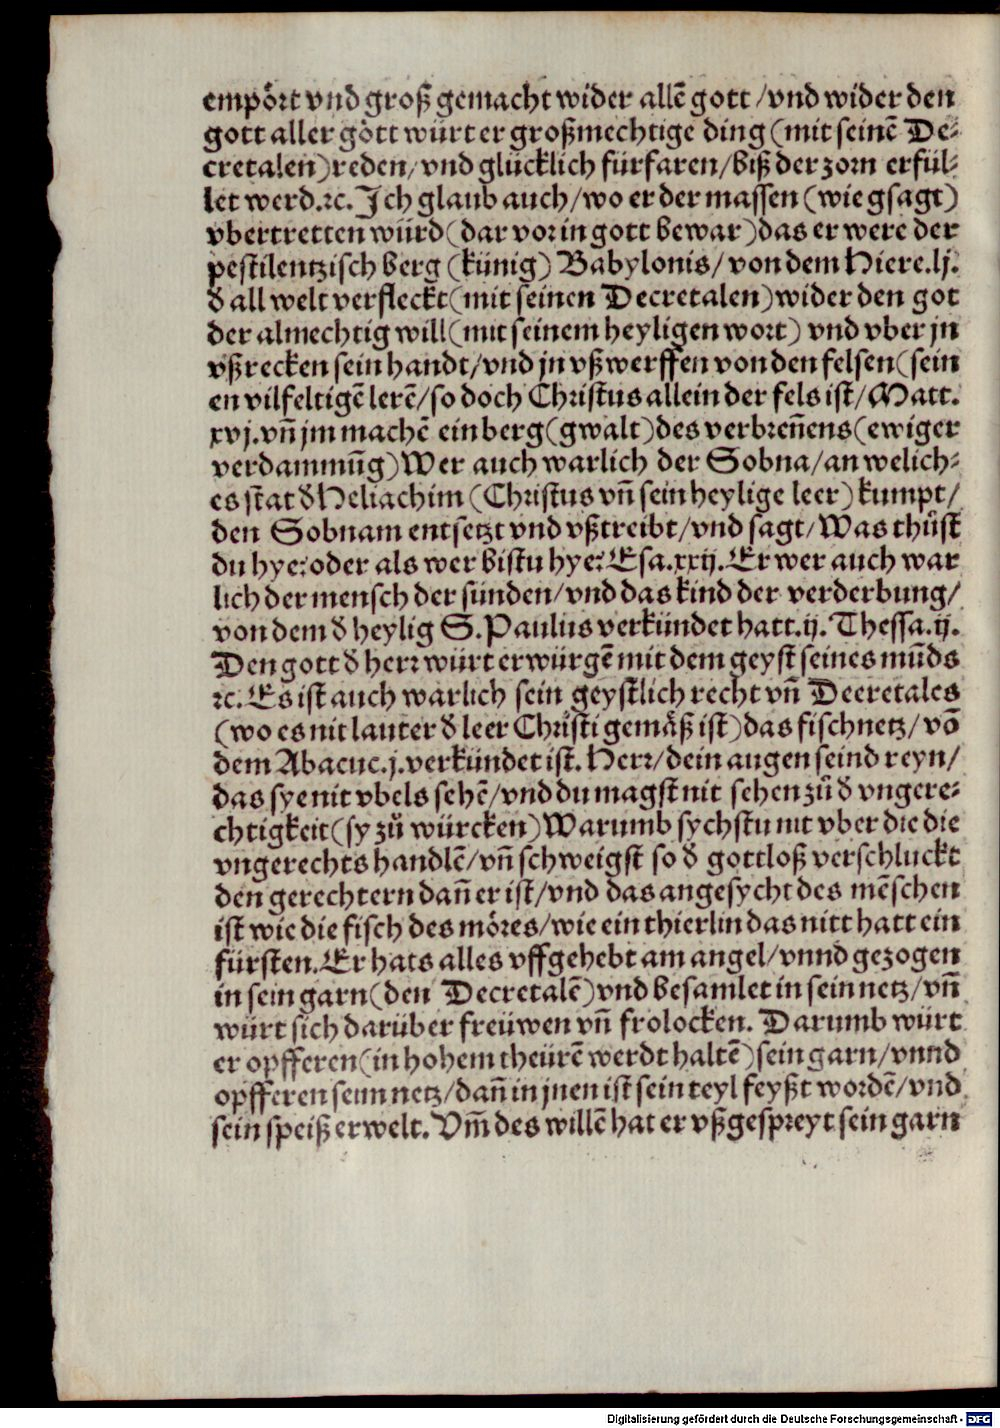 empoͤrt vnd groß gemacht wider allē gott /vnd wider den
gott aller goͤtt würt er großmechtige ding (mit seinē De⸗
cretalen)reden/vnd glücklich fürfaren/biß der zorn erfül⸗
let werd.ꝛc. Ich glaub auch/wo er der massen (wie gsagt)
vbertretten würd(dar vor in gott bewar)das er were der
pestilentzisch berg (künig) Babylonis/ von dem Hiere.lj.
ð all welt verfleckt(mit seinen Decretalen)wider den got
der almechtig will(mit seinem heyligen wort) vnd vber jn
vßrecken sein handt/vnd jn vßwerffen von den felsen(sein
en vilfeltigē lerē/so doch Christus allein der fels ist/Matt.
xvj.vn̄ jm machē ein berg(gwalt)des verbren̄ens(ewiger
verdammūg)Wer auch warlich der Sobna/an welich⸗
es stat ð Heliachim (Christus vn̄ sein heylige leer) kumpt/
den Sobnam entsetzt vnd vßtreibt/vnd sagt/Was thuͦst
du hye:oder als wer bistu hye: Esa.xxij.Er wer auch war
lich der mensch der sünden/vnd das kind der verderbung/
von dem ð heylig S.Paulus verkündet hatt.ij. Thessa.ij.
Den gott ð herr würt erwürgē mit dem geyst seines mūds
ꝛc. Es ist auch warlich sein geystlich recht vn̄ Decretales
(wo es nit lauter ð leer Christi gemaͤß ist)das fischnetz/ vō
dem Abacuc.j.verkündet ist. Herr/dein augen seind reyn/
das sye nit vbels sehē/vnd du magst nit sehen zuͦ ð vngere⸗
chtigkeit(sy zuͦ würcken)Warumb sychstu nit vber die die
vngerechts handlē/vn̄ schweigst so ð gottloß verschluckt
den gerechtern dan̄ er ist/vnd das angesycht des mēschen
ist wie die fisch des moͤres/wie ein thierlin das nitt hatt ein
fürsten.Er hats alles vffgehebt am angel/vnnd gezogen
in sein garn(den Decretalē)vnd besamlet in sein netz/vn̄
würt sich darüber freüwen vn̄ frolocken. Darumb würt
er opfferen(in hohem theürē werdt haltē)sein garn/vnnd
opfferen seim netz/dan̄ in jnen ist sein teyl feyßt wordē/vnd
sein speiß erwelt. Vm̄ des willē hat er vßgespreyt sein garn
Digitalisierung gefördert durch die Deutsche Forschungsgemeinschaft - DFG